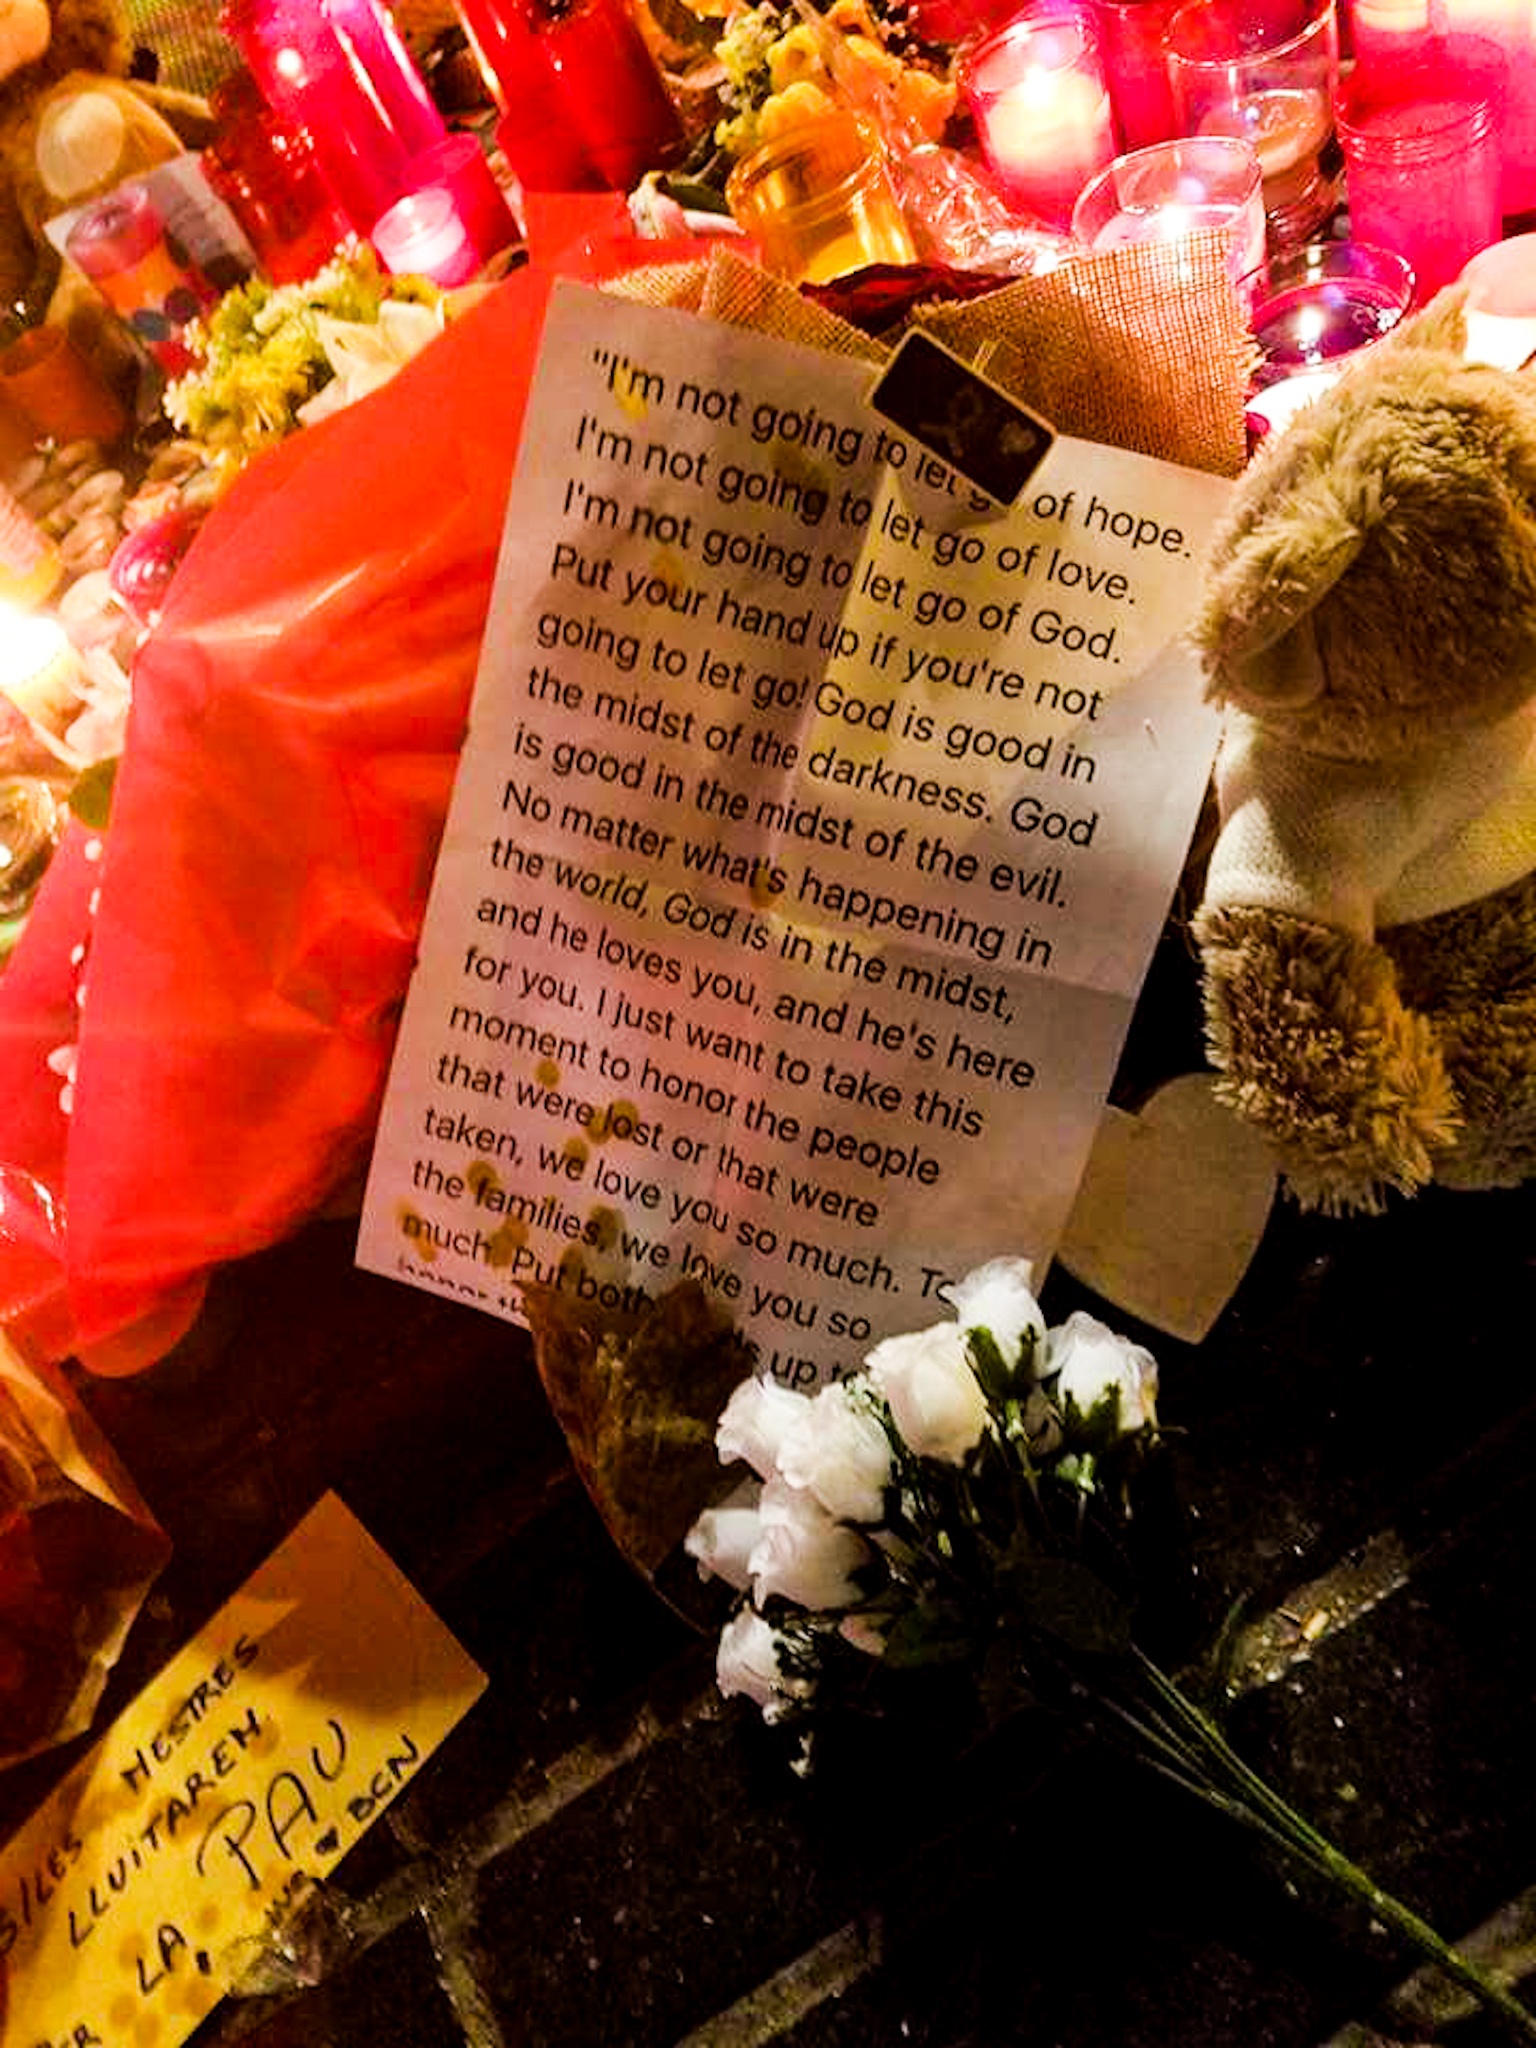 "I'm not going to let g of hope.
I'm not going to let go of love.
I'm not going to let go of God.
Put your hand up if you're not
going to let go! God is good in
the midst of the darkness. God
is good in the midst of the evil.
No matter what's happening in
the world, God is in the midst,
and he loves you, and he's here
for you. I just want to take this
moment to honor the people
that were lost or that were
taken, we love you so much. To
the families, we love you so
much. Put both up
MESTRES
LLUITAREM
LA PAU
BCN